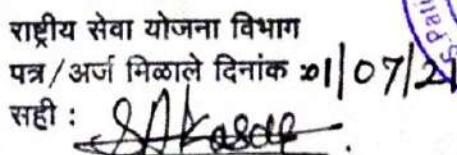 राष्ट्रीय सेवा योजना विभाग
पत्र/अर्ज मिळाले दिनांक 01/07/21
सही :